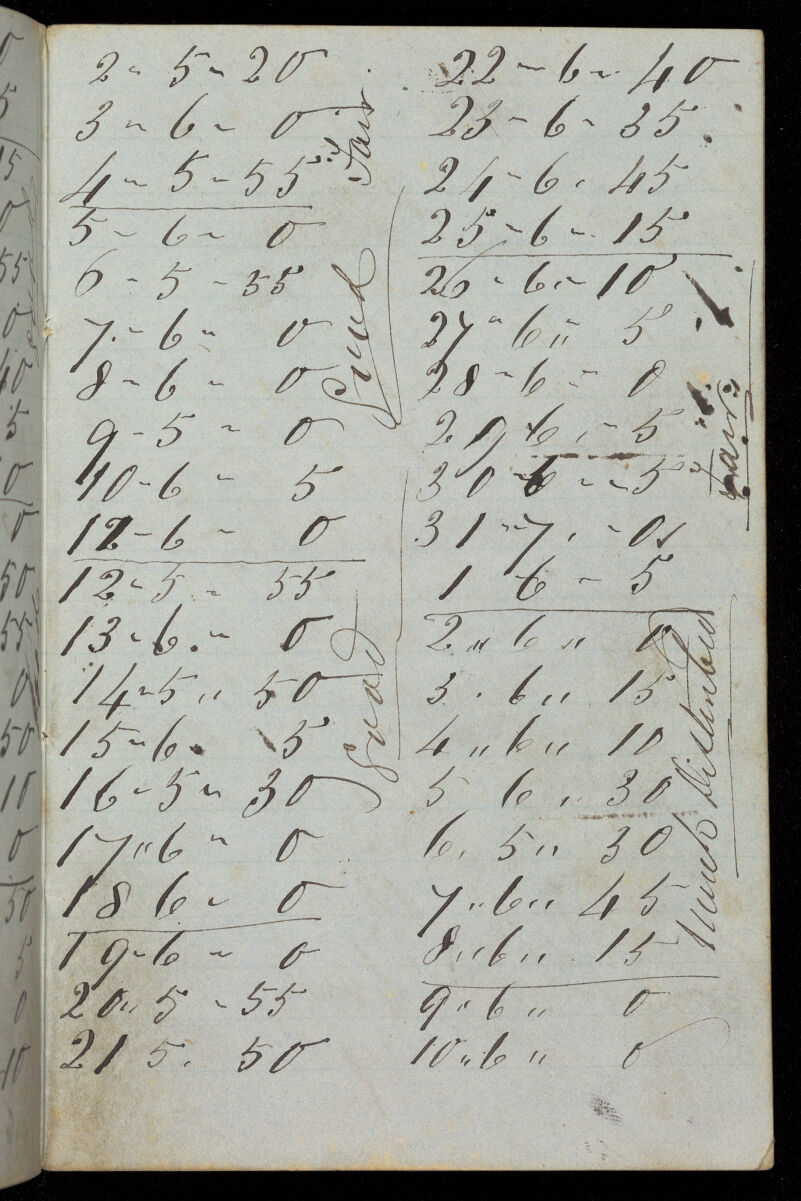 2 " 5 " 20
3 " 6 " 0
4 " 5 " 55
5 " 6 " 0
6 " 5 " 55
7 " 6 " 0
8 " 6 " 0
9 " 5 " 0
10 " 6 " 5
12 " 6 " 0
12 " 5 " 55
13 " 6 " 0
14 " 5 " 50
15 " 6 " 5
16 " 5 " 30
17 " 6 " 0
18 6 " 0
19 " 6 " 0
20 " 5 " 55
21 5 " 50
Fair
Good
22 " 6 " 40
23 " 6 " 35
24 " 6 " 45
25 " 6 " 15
26 " 6 " 10
27 " 6 " 5
28 " 6 " 0
29 6 " 5
30 6 " 5
31 " 7 " 0
1 6 " 5
2 " 6 " 0
3 " 6 " 15
4 " 6 " 10
5 6 " 30
6 " 5 " 30
7 " 6 " 45
8 " 6 " 15
9 " 6 " 0
10 " 6 " 0
Fair
Much disturbed